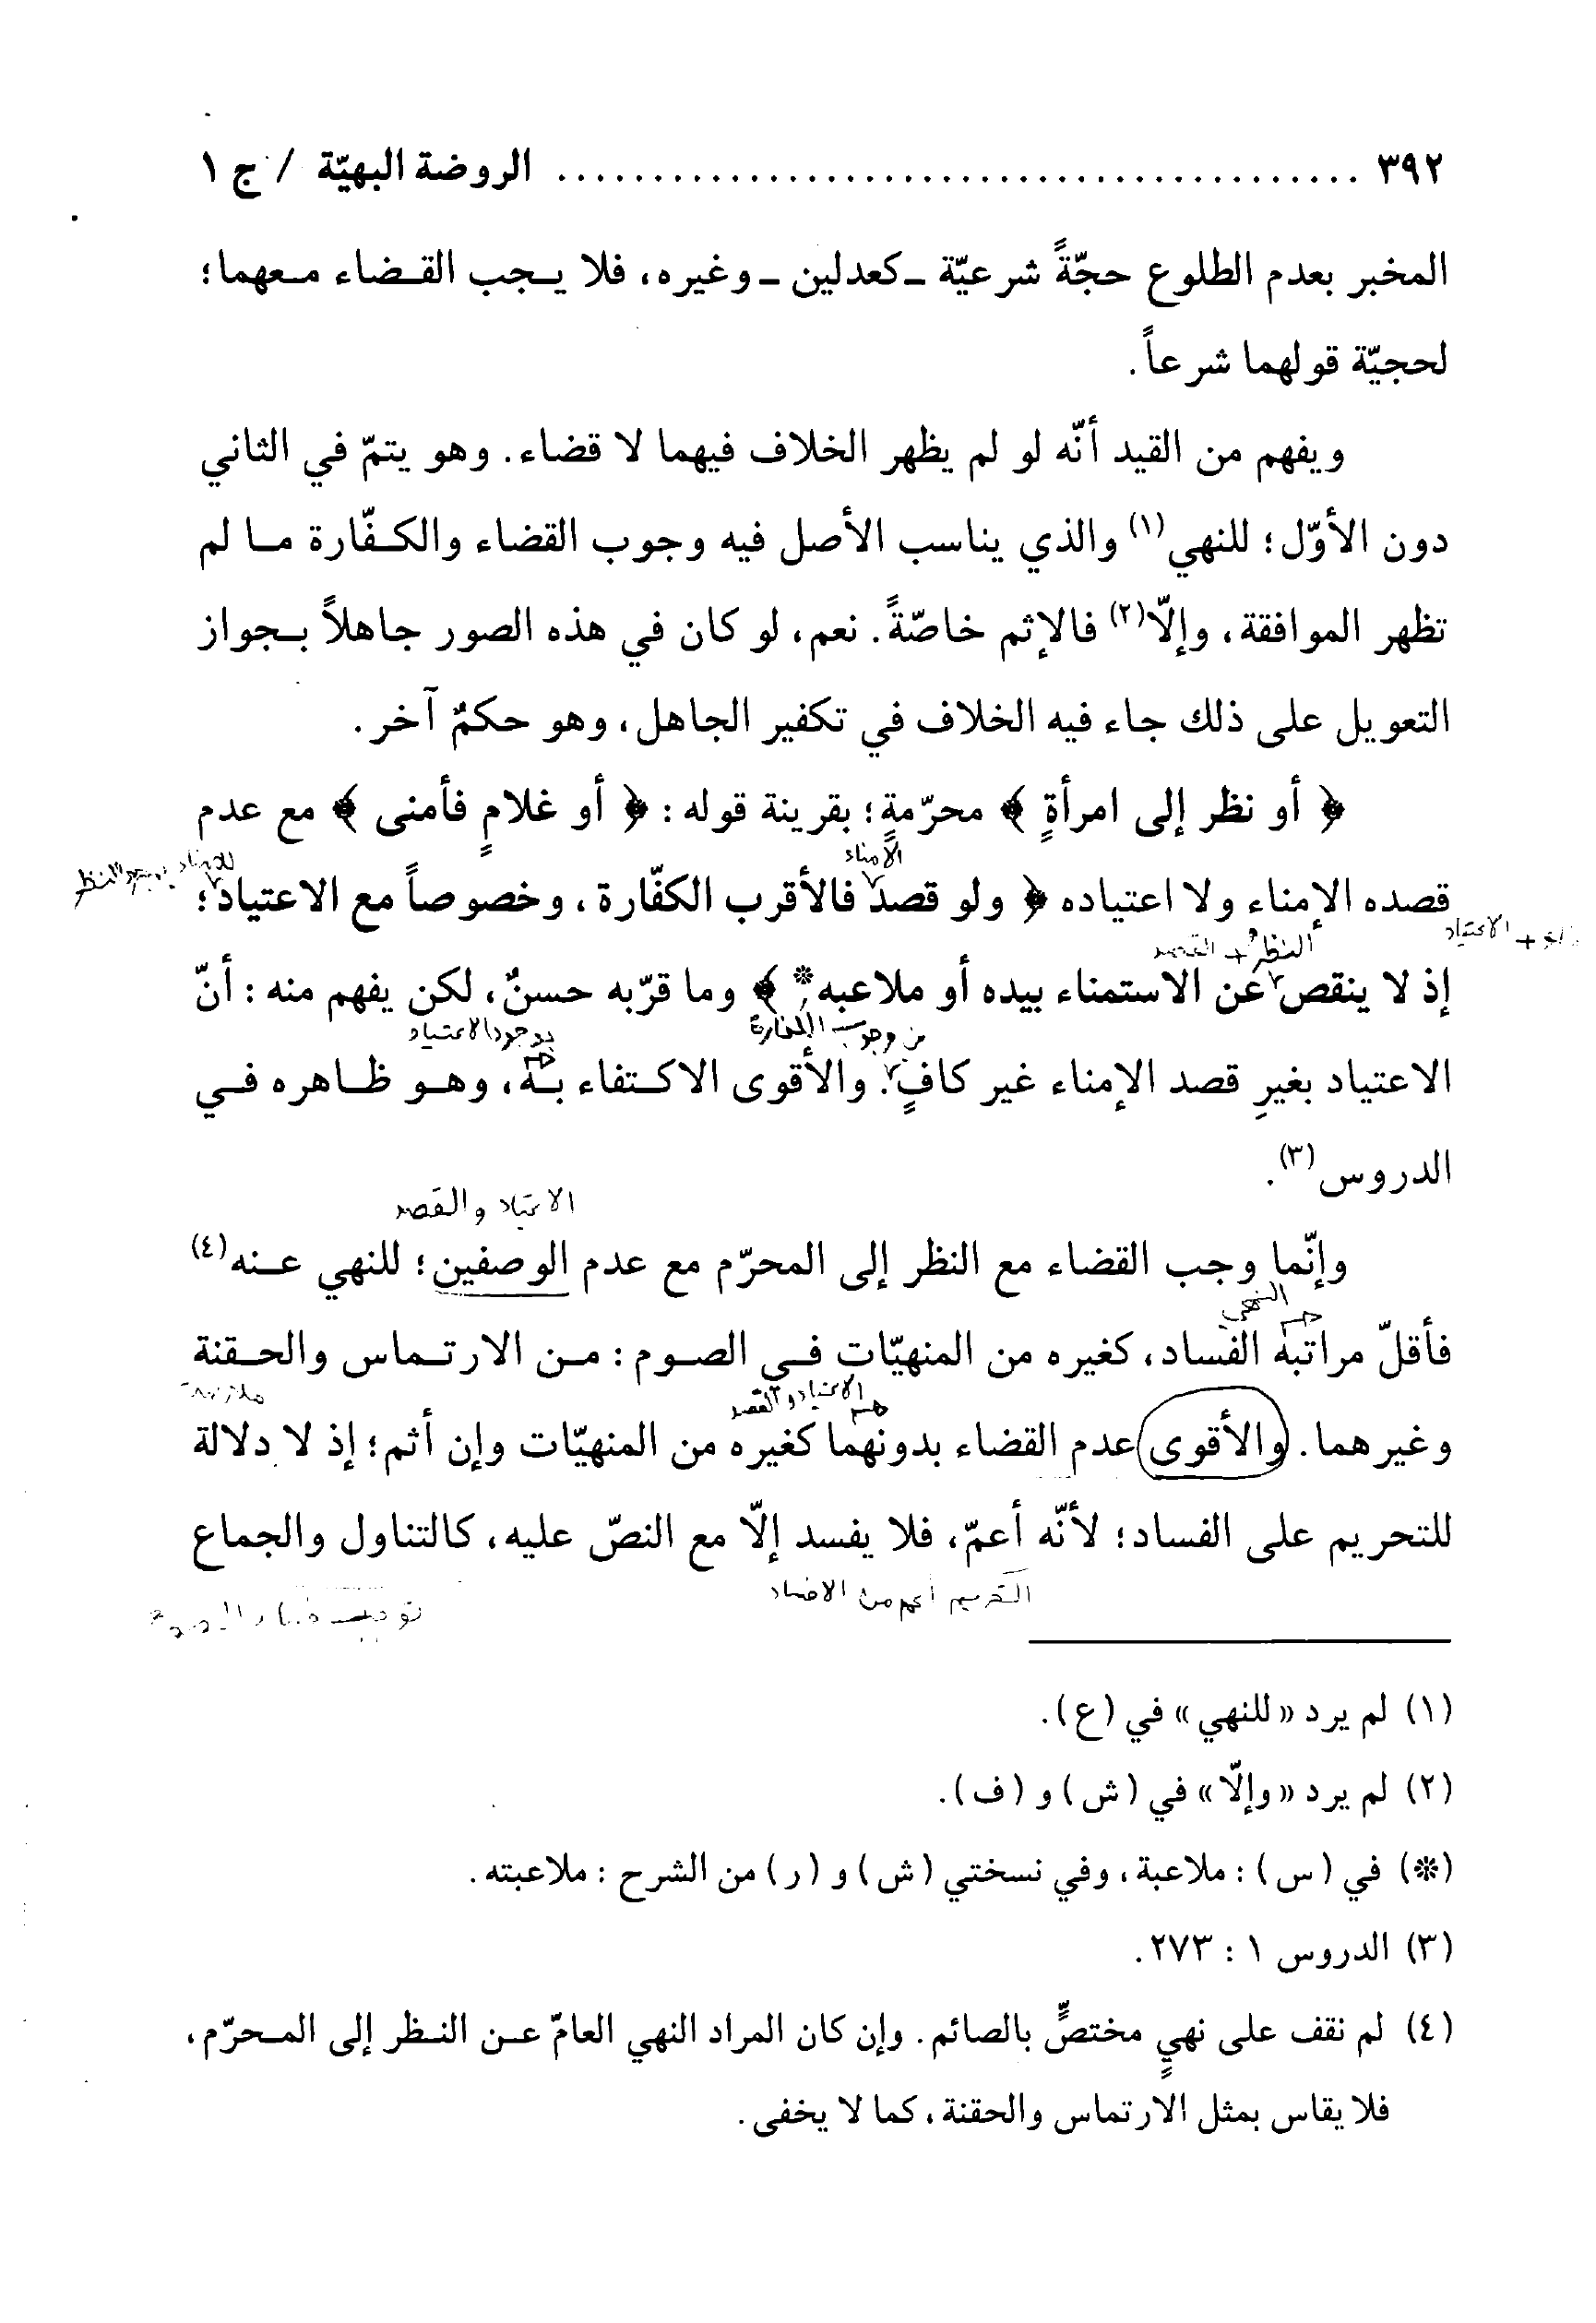 ٣٩٢ ........................................ الروضة البهيّة / ج ١
المخبر بعدم الطلوع حجّةً شرعيّة ـ كعدلين ـ وغيره، فلا يـجب القـضاء مـعهما؛
لحجيّة قولهما شرعاً.
ويفهم من القيد أنّه لو لم يظهر الخلاف فيهما لا قضاء. وهو يتمّ في الثاني
دون الأوّل؛ للنهي (١) والذي يناسب الأصل فيه وجوب القضاء والكـفّارة مـا لم
تظهر الموافقة، وإلّا (٢) فالإثم خاصّةً. نعم، لو كان في هذه الصور جاهلاً بـجواز
التعويل على ذلك جاء فيه الخلاف في تكفير الجاهل، وهو حكمٌ آخر.
﴿ أو نظر إلى امرأةٍ ﴾ محرّمةٍ؛ بقرينة قوله: ﴿ أو غلامٍ فأمنى ﴾ مع عدم
الأمناء
قصده الإمناء ولا اعتياده ﴿ ولو قصد فالأقرب الكفّارة، وخصوصاً مع الاعتياد؛
+ الاعتياد
النظر + القصد
إذ لا ينقص عن الاستمناء بيده أو ملاعبه * ﴾ وما قرّبه حسنٌ، لكن يفهم منه: أنّ
من وجوب الكفارة
بوجود الاعتياد
الاعتياد بغيرِ قصد الإمناء غير كافٍ. والأقوى الاكـتفاء بـه، وهـو ظـاهره فـي
الدروس (٣).
الاعتياد والقصد
وإنّما وجب القضاء مع النظر إلى المحرّم مع عدم الوصفين؛ للنهي عـنه (٤)
النهي
فأقلّ مراتبه الفساد، كغيره من المنهيّات فـي الصـوم: مـن الارتـماس والحـقنة
الاعتياد والقصد
وغيرهما. والأقوى عدم القضاء بدونهما كغيره من المنهيّات وإن أثم؛ إذ لا دلالة
للتحريم على الفساد؛ لأنّه أعمّ، فلا يفسد إلّا مع النصّ عليه، كالتناول والجماع
التحريم أعم من الافساد
(١) لم يرد «للنهي» في (ع).
(٢) لم يرد «وإلّا» في (ش) و (ف).
(*) في (س): ملاعبة، وفي نسختي (ش) و (ر) من الشرح: ملاعبته.
(٣) الدروس ١: ٢٧٣.
(٤) لم نقف على نهيٍ مختصٍّ بالصائم. وإن كان المراد النهي العامّ عـن النـظر إلى المـحرّم،
فلا يقاس بمثل الارتماس والحقنة، كما لا يخفى.